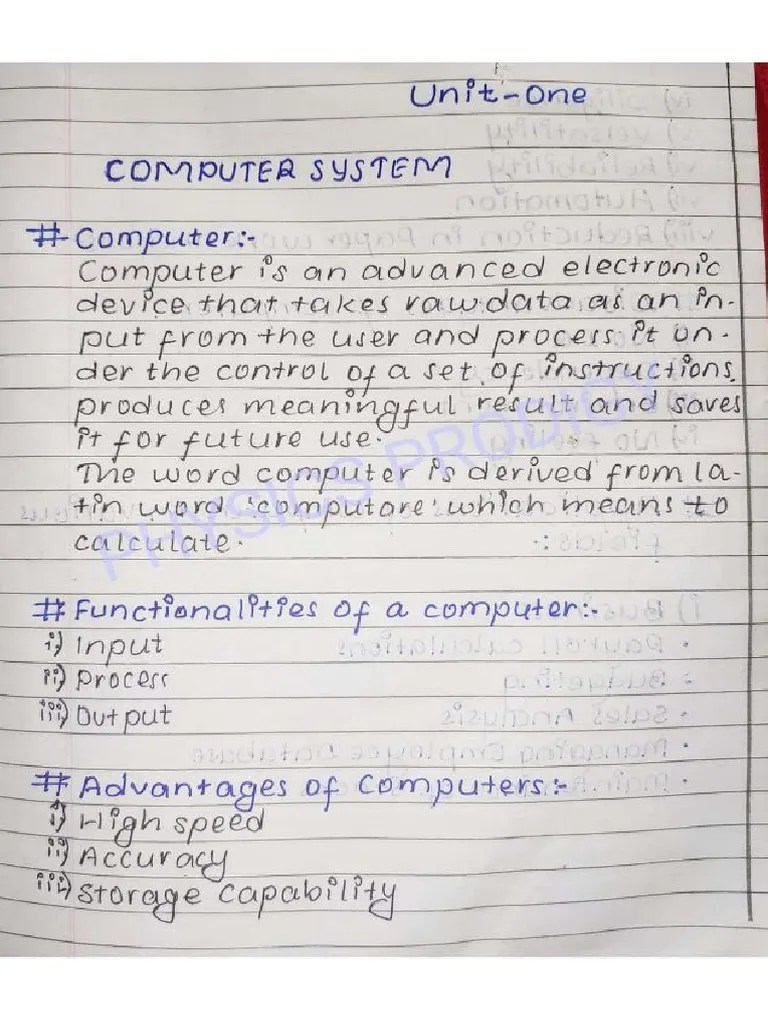 Unit-One
COMPUTER SYSTEM
# Computer:-
Computer is an advanced electronic
device that takes raw data as an in-
put from the user and process it un-
der the control of a set of instructions,
produces meaningful result and saves
it for future use.
The word computer is derived from la-
tin word 'computare' which means to
calculate.
# Functionalities of a computer:-
i) Input
ii) Process
iii) Output
# Advantages of computers:-
i) High speed
ii) Accuracy
iii) Storage capability
PHYSICS PRODIGY